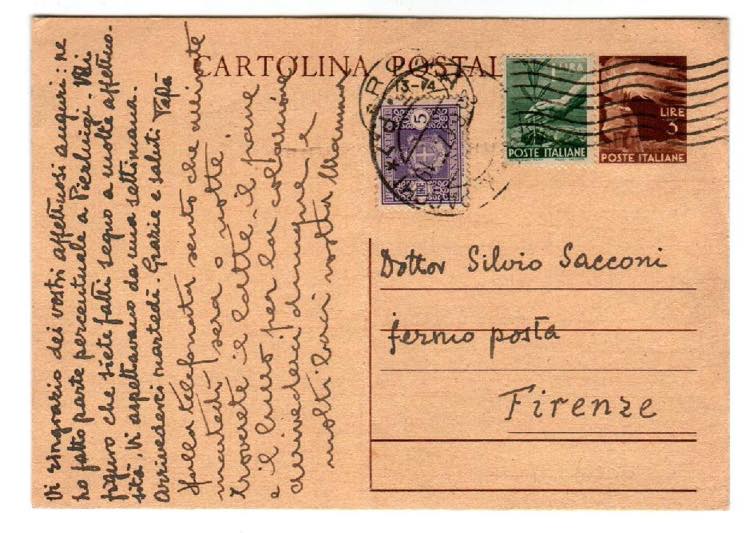 CARTOLINA POSTAL
ROMA
13-14
5
1 LIRA
POSTE ITALIANE
LIRE
3
POSTE ITALIANE
Dottor Silvio Sacconi
fermo posta
Firenze
Vi ringrazio dei vostri affettuosi auguri: ne
ho fatto parte percentuale a Pierluigi. Mi
figuro che siete fatti segno a molte affettuo-
sità. Vi aspettavano da una settimana.
Arrivederci martedì. Grazie e saluti Papà
Dalla telefonata sento che arrivate
martedì sera o notte.
troverete il latte, il pane
e il burro per la colazione
arrivederci dunque e
molti baci vostra Mamma